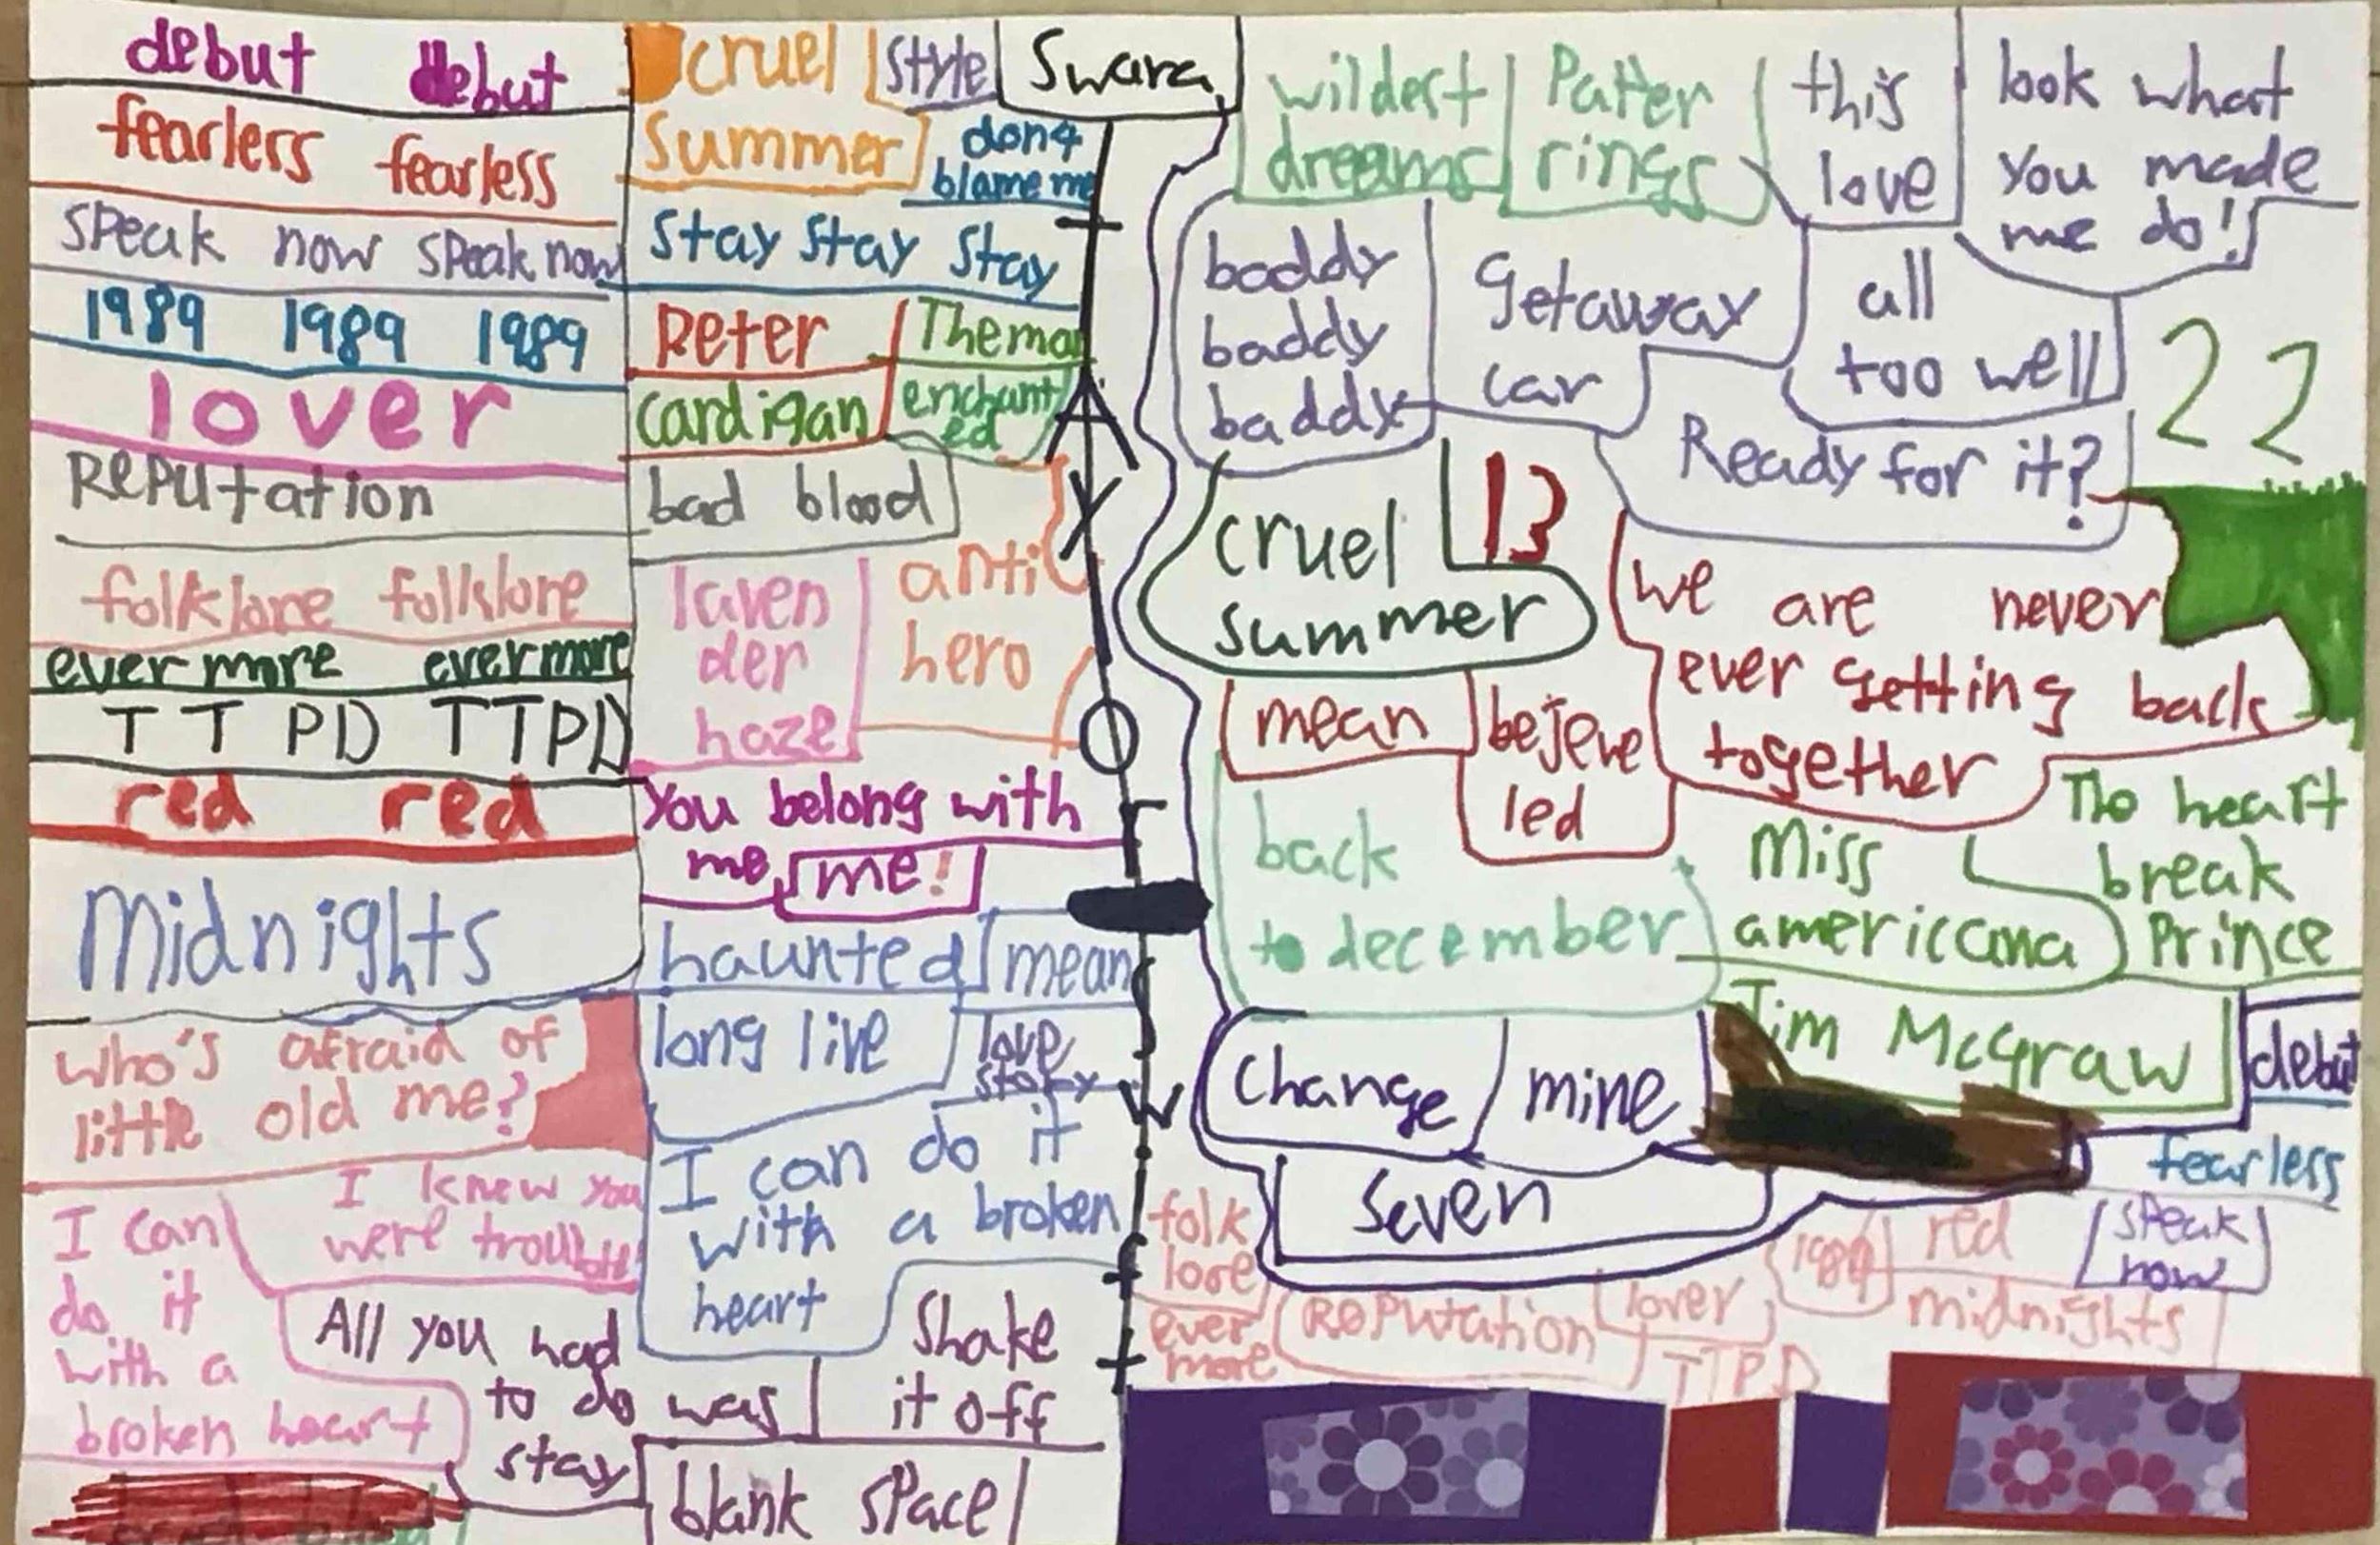 debut debut
fearless fearless
speak now speak now
1989 1989 1989
lover
Reputation
folklore folklore
evermore evermore
TTPD TTPD
red red
Midnights
who's afraid of
little old me?
I knew you
were trouble
I can
do it
with a
broken heart
All you had
to do was
stay
cruel
summer
style
Swara
don4
blame me
stay stay stay
Peter
The man
cardigan
enchant
ed
bad blood
laven
der
haze
anti
hero
You belong with
me
me!
haunted
mean
long live
love
story
I can do it
with a broken
heart
shake
it off
blank space
wildest
dreams
Pater
rings
this
love
look what
you made
me do!
baddy
baddy
baddy
getaway
car
all
too well
22
Ready for it?
cruel
summer
13
we are never
ever getting back
together
mean
bejewe
led
back
to december
Miss
americana
The heart
break
Prince
Tim McGraw
debut
change
mine
seven
fearless
folk
lore
ever
more
Reputation
lover
1989
red
speak
now
midnights
TTPD